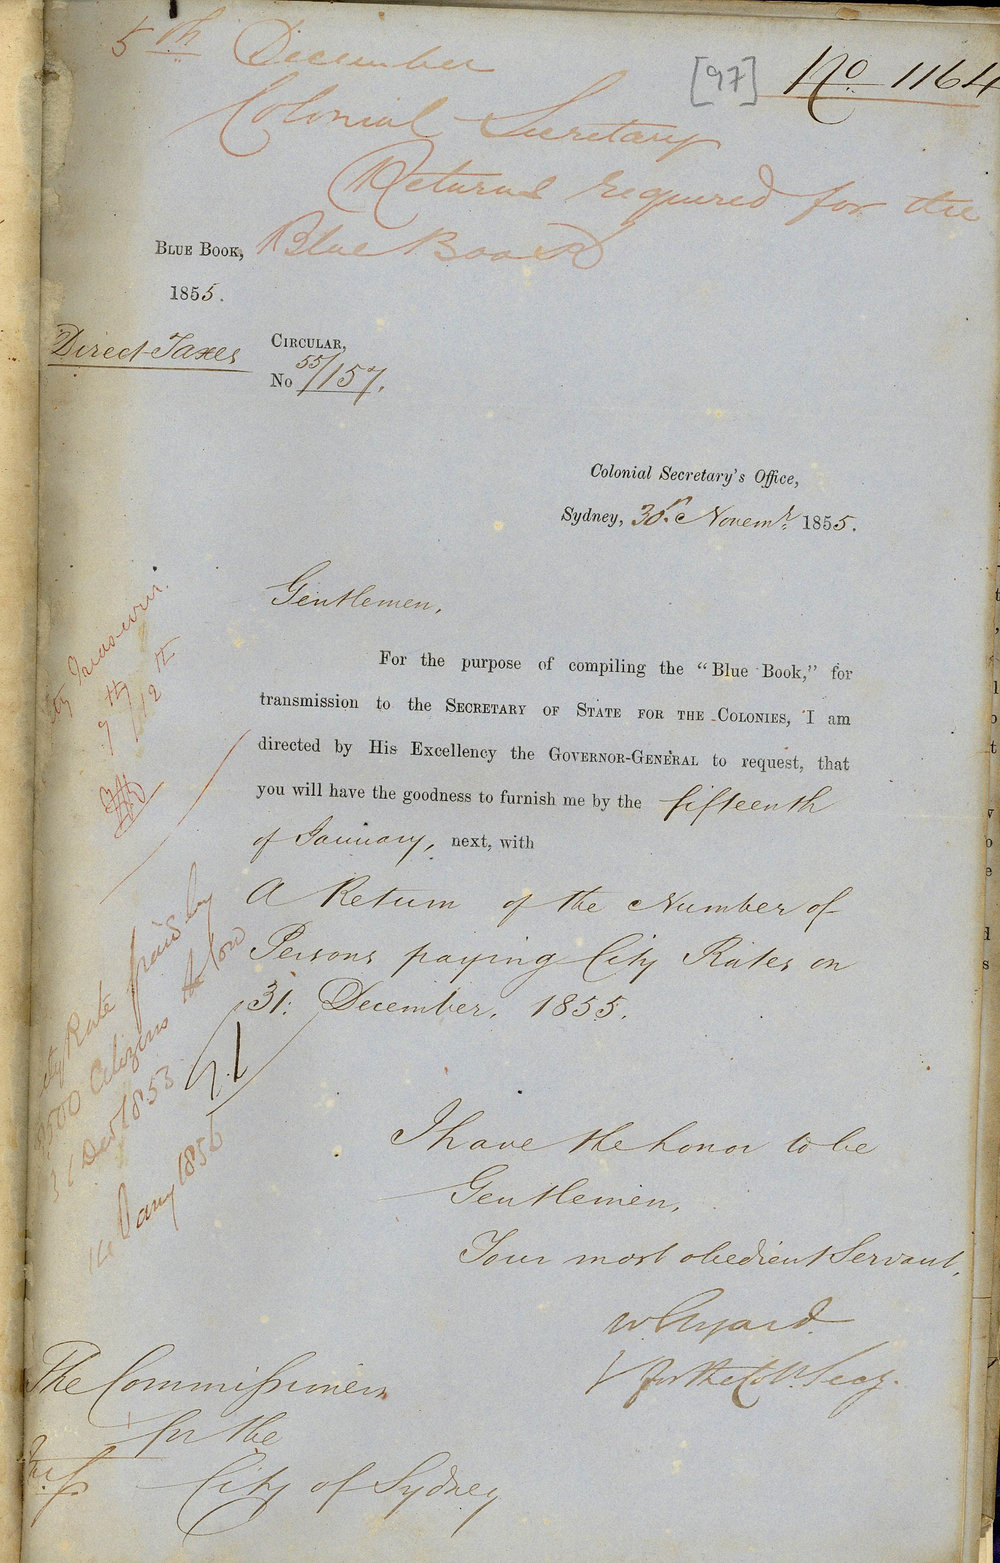 5th December
[97] No 1164
Colonial Secretary
Returns required for the
Blue Book
BLUE BOOK,
1855.
Direct Taxes
CIRCULAR,
No 55/157.
Colonial Secretary's Office,
Sydney, 30. Novemr. 1855.
Gentlemen,
For the purpose of compiling the "Blue Book," for
transmission to the SECRETARY OF STATE FOR THE COLONIES, I am
directed by His Excellency the GOVERNOR-GENERAL to request, that
you will have the goodness to furnish me by the fifteenth
of January, next, with
A Return of the Number of
Persons paying City Rates on
31. December, 1855.
I have the honor to be
Gentlemen,
Your most obedient Servant,
W Elyard
for the Col. Secy.
The Commissioners
for the
City of Sydney
Treasurer
7th/12th
City Rate paid by
Citizens
31 Decr 1853
Jany 1856